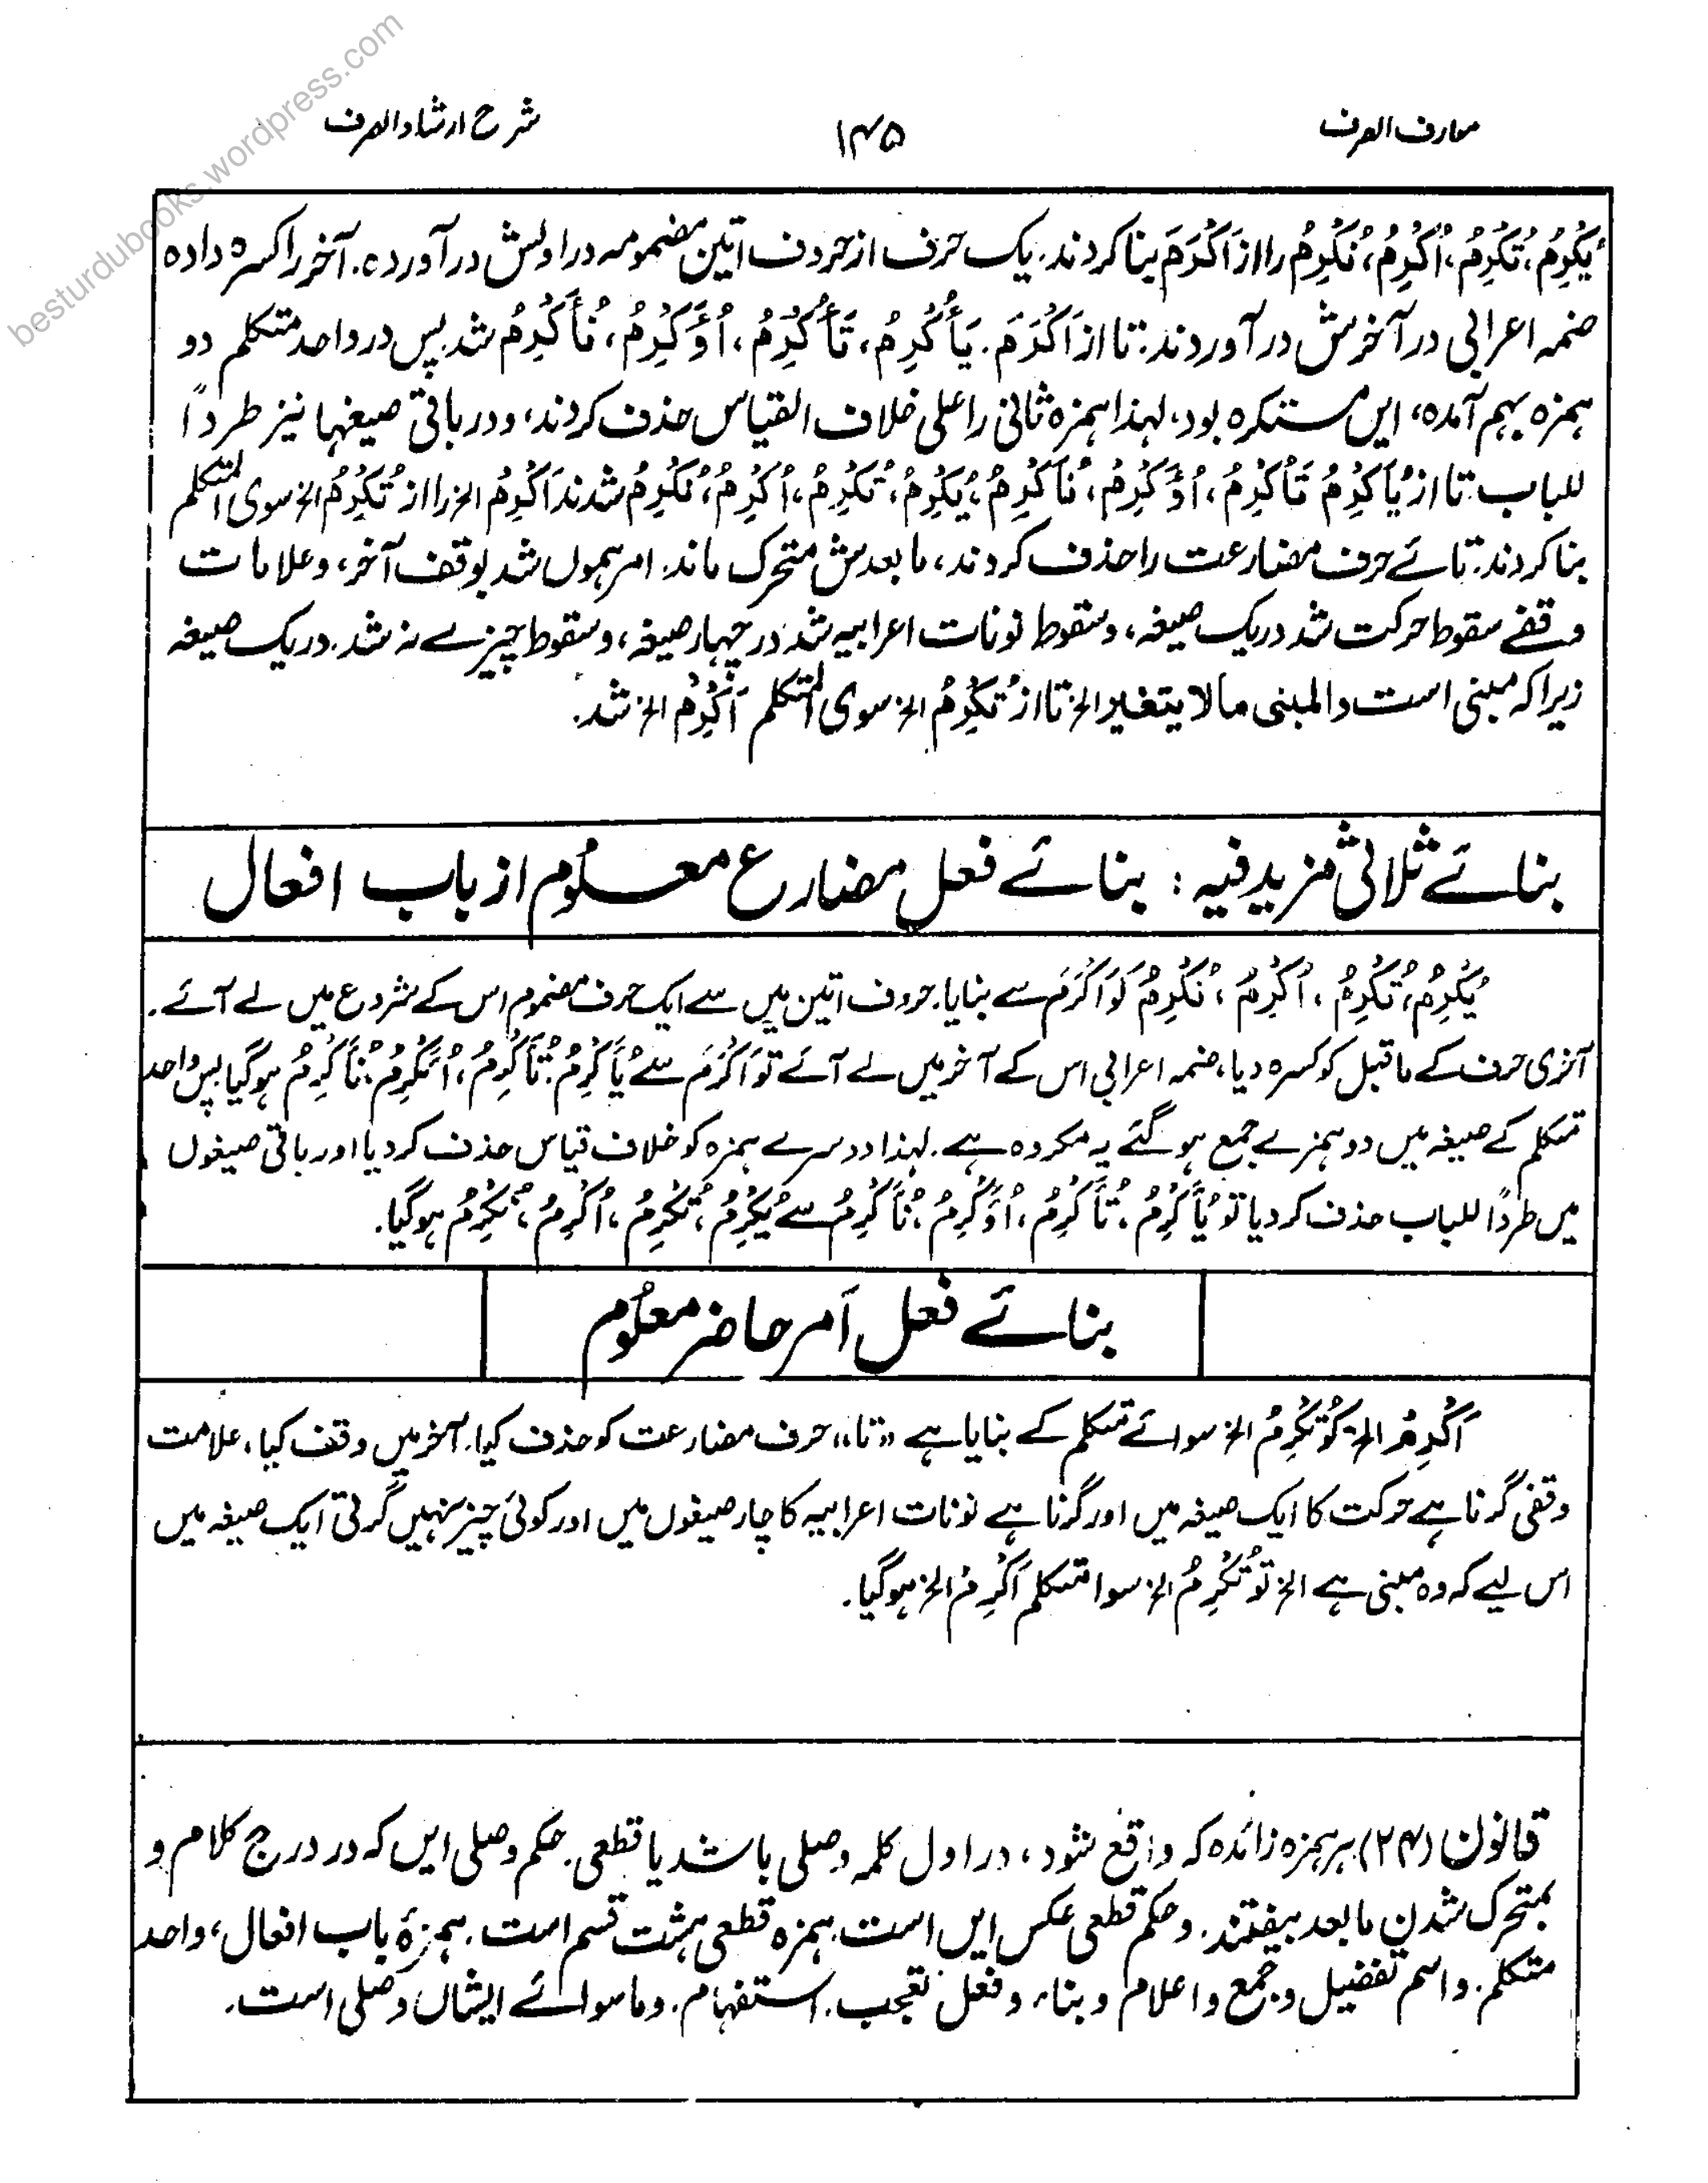 معارف الصرف
۱۴۵
شرح ارشاد الصرف
besturdubooks.wordpress.com
یُکْرِمُ، تُکْرِمُ، اُکْرِمُ، نُکْرِمُ را از اَکْرَمَ بنا کردند. یک حرف از حروف اتین مضمومہ در اولش در آوردہ. آخر را کسرہ دادہ
ضمہ اعرابی در آخرش در آوردند: تا از اَکْرَمَ. یَأُکْرِمُ، تَأُکْرِمُ، اُؤَکْرِمُ، نُأَکْرِمُ شد پس در واحد متکلم دو
ہمزہ بہم آمدہ، ایں مستکرہ بود، لہذا ہمزہ ثانی را علی خلاف القیاس حذف کردند، و در باقی صیغہا نیز طردًا
للباب: تا از یُاَکْرِمُ تَاُکْرِمُ، اُؤَکْرِمُ، نُاَکْرِمُ، یُکْرِمُ، تُکْرِمُ، اُکْرِمُ، نُکْرِمُ شدند اَکْرِمُ الخ را از تُکْرِمُ الخ سوی المتکلم
بنا کردند: تائے حرف مضارعت را حذف کردند، ما بعدش متحرک ماند. امر ہموں شد بوقف آخر، و علامات
وقفے سقوط حرکت شد در یک صیغہ، و سقوط نونات اعرابیہ شد در چہار صیغہ، و سقوط چیزے نہ شد. در یک صیغہ
زیرا کہ مبنی است و المبنی ما لا یتغیر الخ تا از تُکْرِمُ الخ سوی المتکلم اَکْرِمُ الخ شد.
بنائے ثلاثی مزید فیہ : بنائے فعل مضارع معلُوم از باب افعال
یُکْرِمُ، تُکْرِمُ ، اُکْرِمُ ، نُکْرِمُ کو اَکْرَمَ سے بنایا. حروف اتین میں سے ایک حرف مضموم اس کے شروع میں لے آئے .
آخری حرف کے ماقبل کو کسرہ دیا، ضمہ اعرابی اس کے آخر میں لے آئے تو اَکْرَمَ سے یُأَکْرِمُ، تُأَکْرِمُ، اُئَکْرِمُ، نُأَکْرِمُ ہو گیا پس واحد
متکلم کے صیغہ میں دو ہمزے جمع ہو گئے یہ مکروہ ہے . لہذا دوسرے ہمزہ کو خلاف قیاس حذف کر دیا اور باقی صیغوں
میں طردًا للباب حذف کر دیا تو یُأَکْرِمُ ، تُأَکْرِمُ ، اُؤَکْرِمُ ، نُأَکْرِمُ سے یُکْرِمُ، تُکْرِمُ ، اُکْرِمُ ، نُکْرِمُ ہو گیا.
بنائے فعل اَمر حاضر معلُوم
اَکْرِمُ الخ کو تُکْرِمُ الخ سوائے متکلم کے بنایا ہے «تا» حرف مضارعت کو حذف کیا. آخر میں وقف کیا، علامت
وقفی گرنا ہے حرکت کا ایک صیغہ میں اور گرنا ہے نونات اعرابیہ کا چار صیغوں میں اور کوئی چیز نہیں گرتی ایک صیغہ میں
اس لیے کہ وہ مبنی ہے الخ تو تُکْرِمُ الخ سوا متکلم اَکْرِمُ الخ ہو گیا.
قانون (۲۴) ہر ہمزہ زائدہ کہ واقع شود، در اول کلمہ وصلی باشد یا قطعی. حکم وصلی ایں کہ در درج کلام و
بمتحرک شدن ما بعد بیفتند. و حکم قطعی عکس ایں است. ہمزہ قطعی ہشت قسم است. ہمزۂ باب افعال، واحد
متکلم. و اسم تفضیل و جمع و اعلام و بناء و فعل تعجب. استفہام. و ما سوائے ایشاں وصلی است.